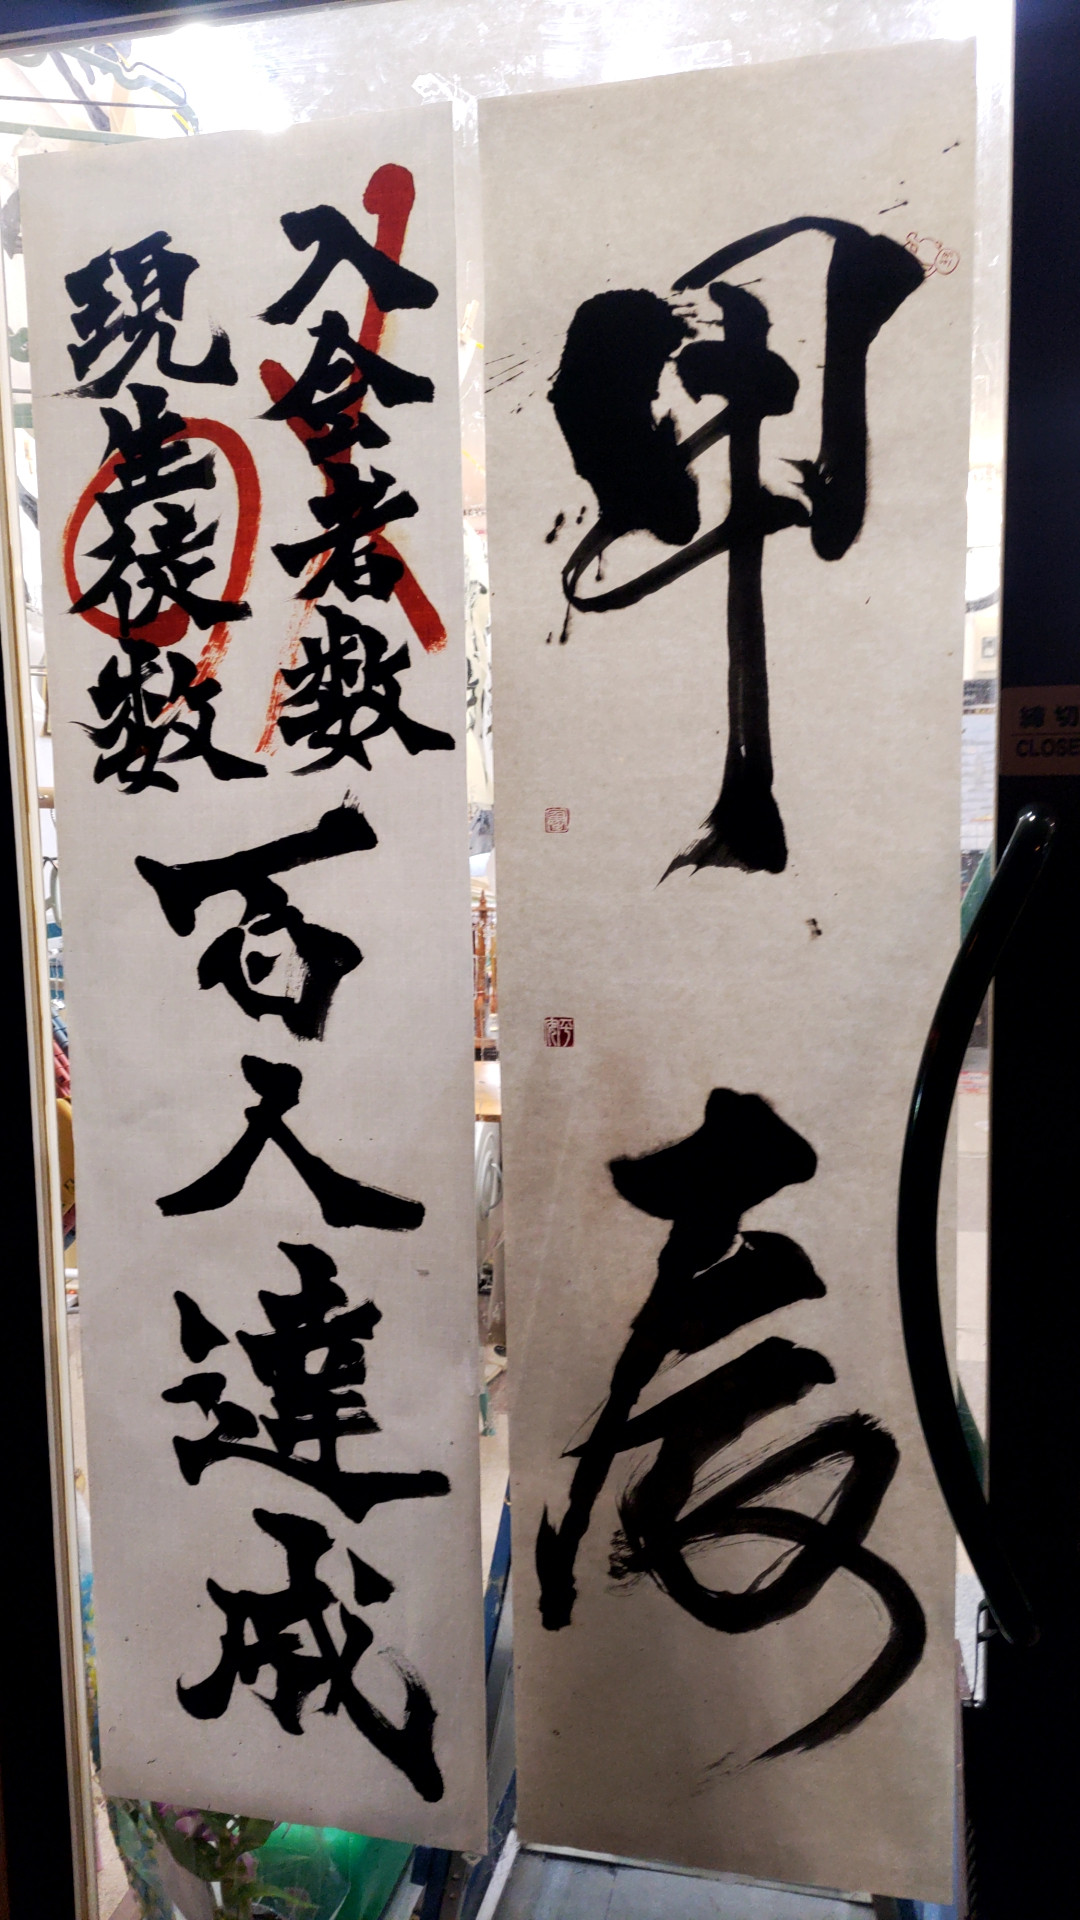 甲辰
入会者数
現生徒数
百人達成
締切
CLOSE